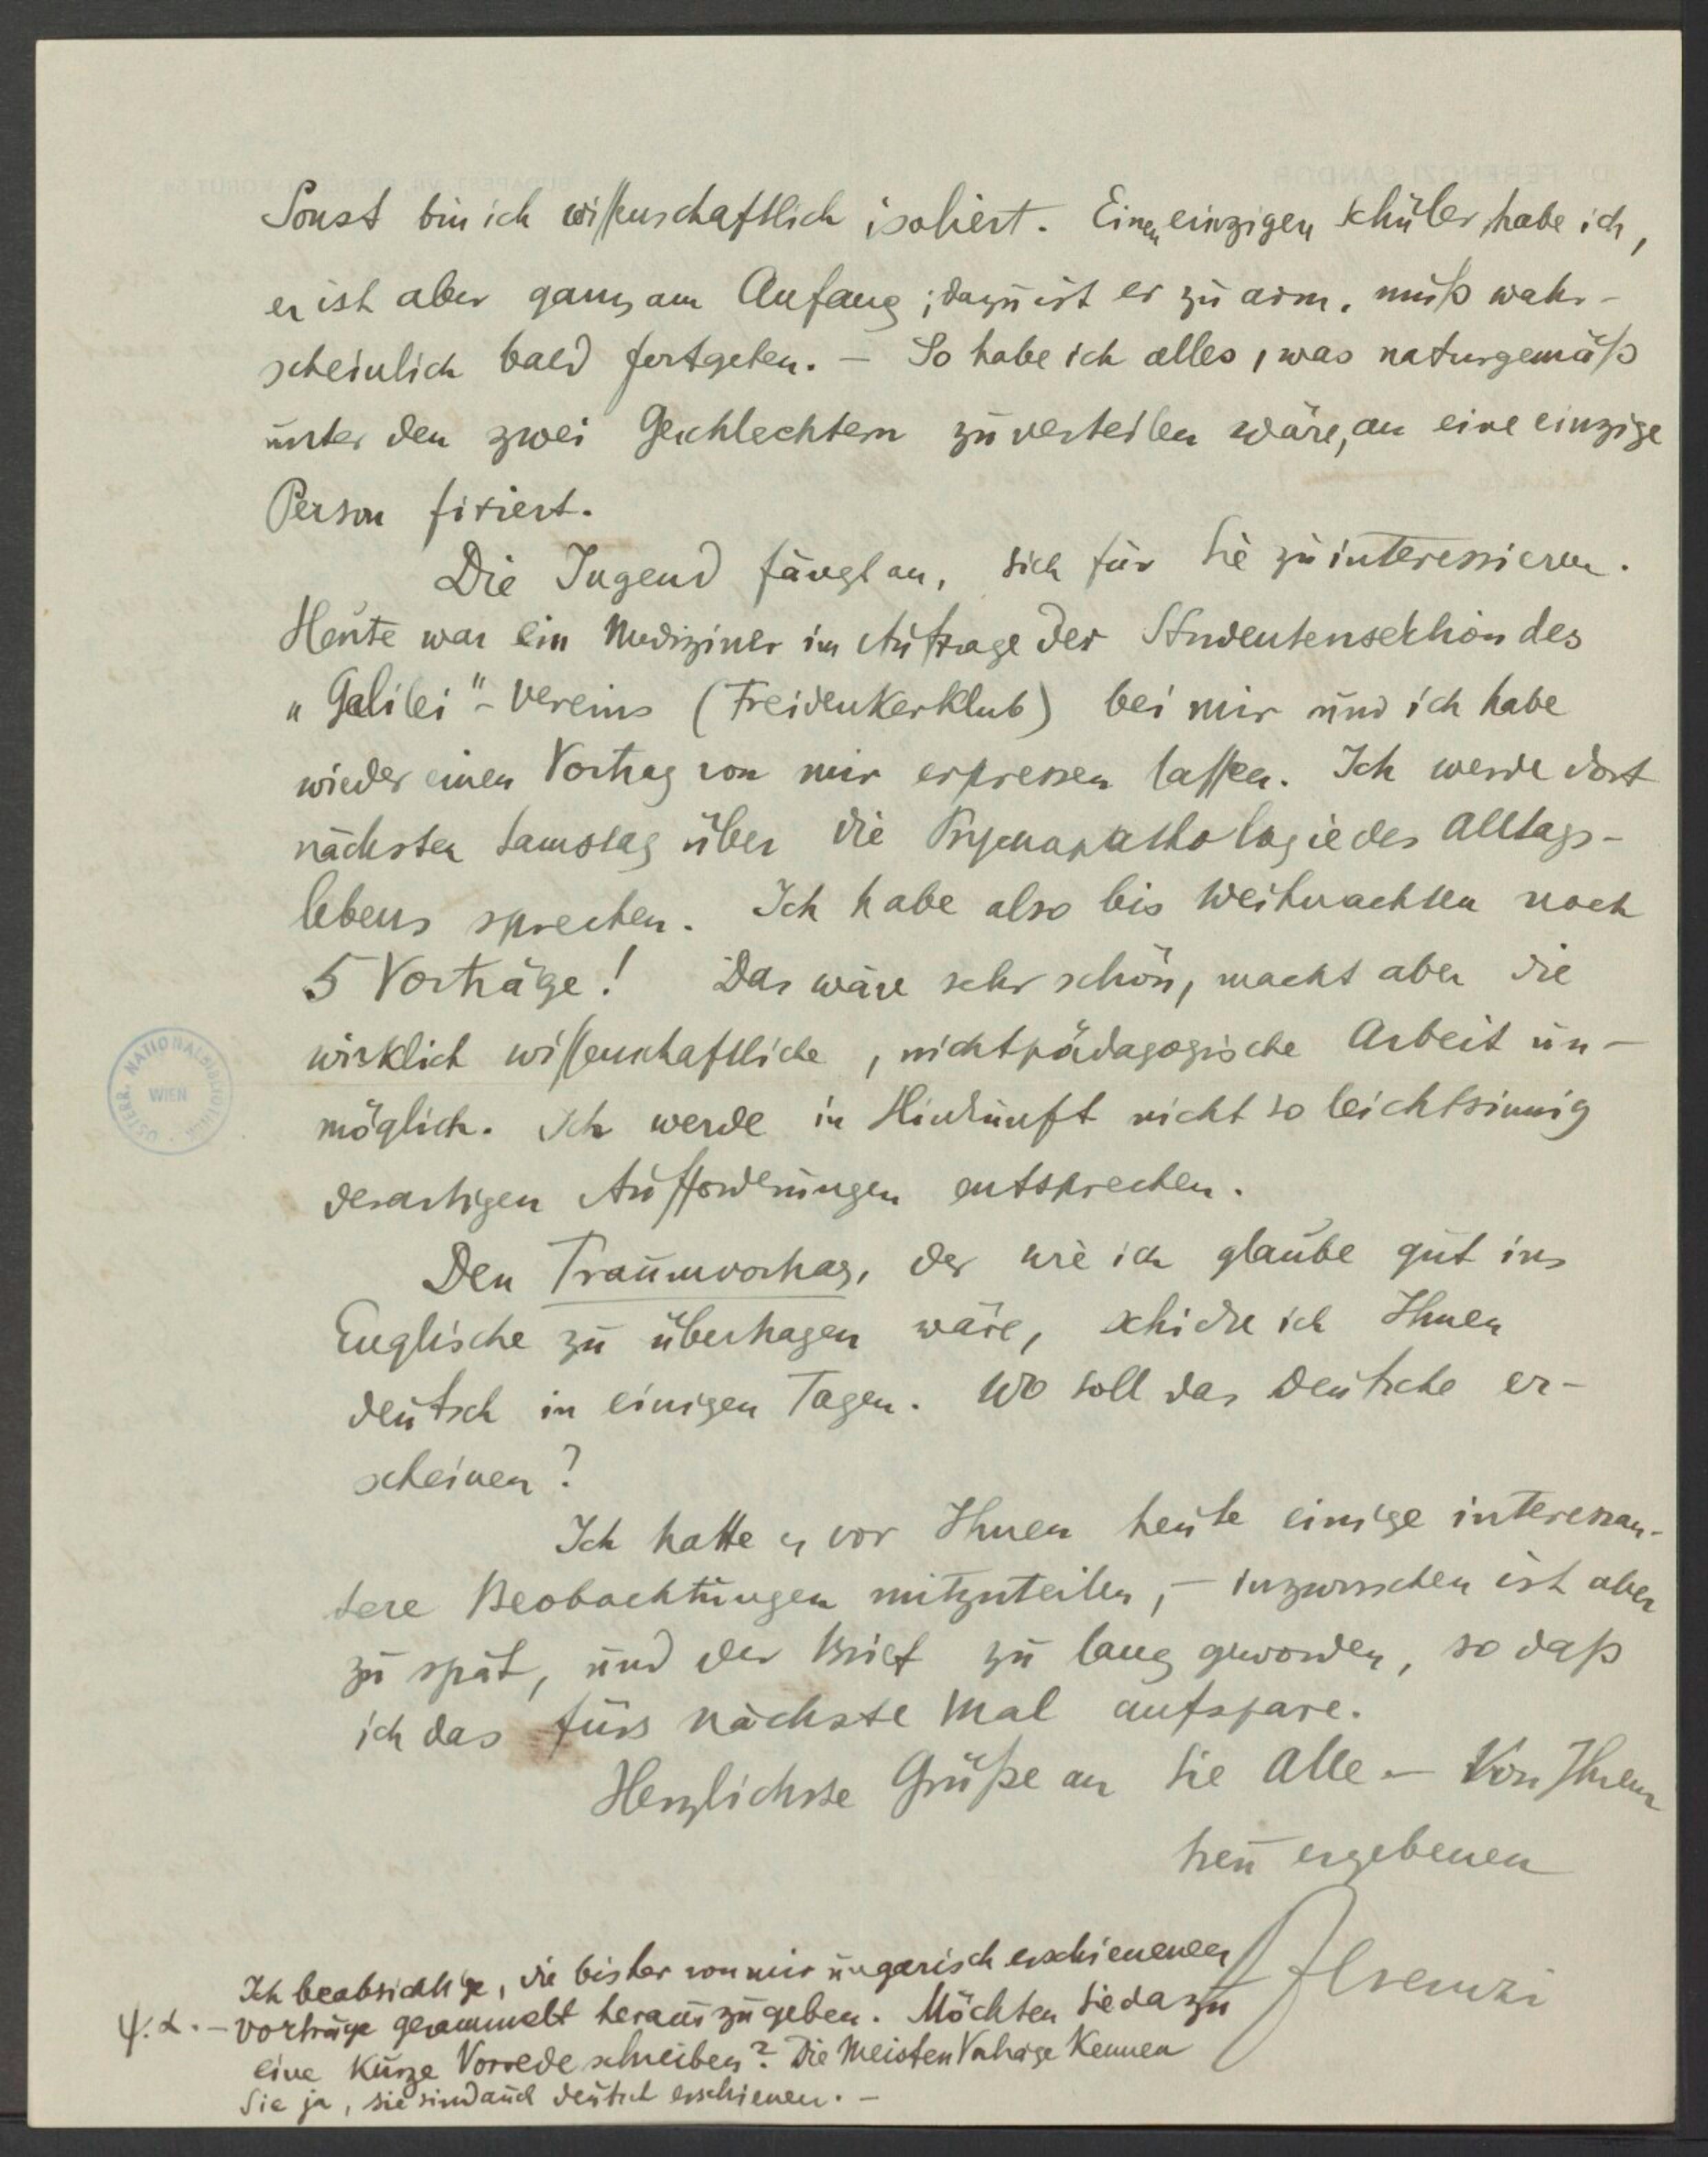 Sonst bin ich wissenschaftlich isoliert. Einen einzigen Schüler habe ich,
er ist aber ganz am Anfang; dazu ist er zu arm, muß wahr-
scheinlich bald fortgehen. – So habe ich alles, was naturgemäß
unter den zwei Geschlechtern zu verteilen wäre, an eine einzige
Person fixiert.
Die Jugend fängt an, sich für Sie zu interessieren.
Heute war ein Mediziner im Auftrage der Studentensektion des
„Galilei"-Vereins (Freidenkerklub) bei mir und ich habe
wieder einen Vortrag von mir erpressen lassen. Ich werde dort
nächsten Samstag über die Psychopathologie des Alltags-
lebens sprechen. Ich habe also bis Weihnachten noch
5 Vorträge! Das wäre sehr schön, macht aber die
wirklich wissenschaftliche, nichtpädagogische Arbeit un-
möglich. Ich werde in Hinkunft nicht so leichtsinnig
derartigen Aufforderungen entsprechen.
Den Traumvortrag, der wie ich glaube gut ins
Englische zu übertragen wäre, schicke ich Ihnen
deutsch in einigen Tagen. Wo soll das Deutsche er-
scheinen?
Ich hatte vor Ihnen heute einige interessan-
tere Beobachtungen mitzuteilen, – inzwischen ist aber
zu spät, und der Brief zu lang geworden, so daß
ich das fürs nächste Mal aufspare.
Herzlichste Grüße an Sie Alle – Von Ihrem
treu ergebenen
Ferenczi
Ich beabsichtige, die bisher von mir ungarisch erschienenen
ψ.α. – Vorträge gesammelt herauszugeben. Möchten Sie dazu
eine kurze Vorrede schreiben? Die meisten Vorträge kennen
Sie ja, sie sind auch deutsch erschienen. –
ÖSTERR. NATIONALBIBLIOTHEK
WIEN